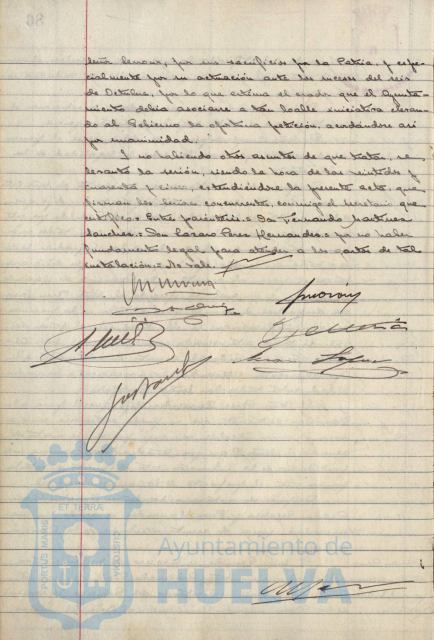 señor Lerroux, por sus sacrificios por la Patria, y espe-
cialmente por su actuación ante los sucesos del seis
de Octubre, por lo que estima el orador que el Ayunta-
miento debía asociarse a tan loable iniciativa elevan-
do al Gobierno la oportuna petición, acordándose así
por unanimidad.
Y no habiendo otros asuntos de que tratar, se
levantó la sesión, siendo la hora de las veintidós y
cuarenta y cinco, extendiéndose la presente acta, que
firman los señores concurrentes, conmigo el secretario que
certifico.= Entre paréntesis.= Don Fernando Martínez
Sanchez.= Don Lázaro Perez Hernandez.= por no haber
fundamento legal para atender a los gastos de tal
instalación.= No vale.
PORTUS MARIS
ET TERRAE
CUSTODIA
Ayuntamiento de
HUELVA